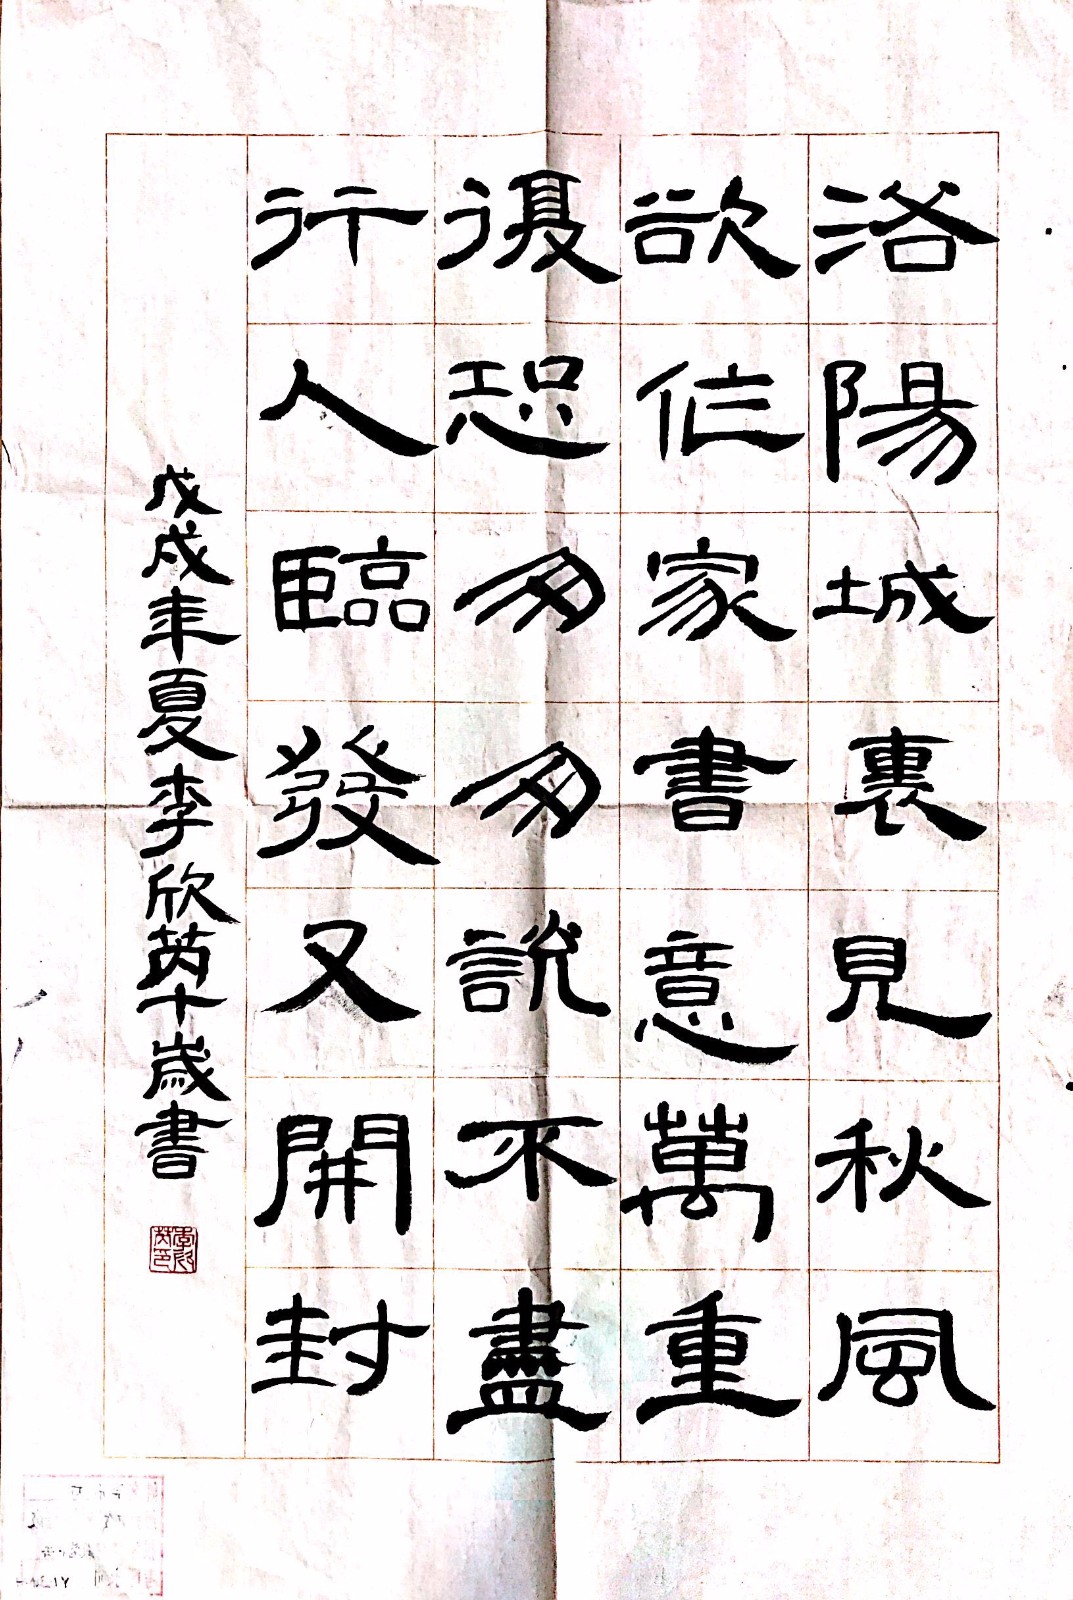 洛陽城裏見秋風
欲作家書意萬重
復恐匆匆說不盡
行人臨發又開封
戊戌年夏李欣芮十歲書